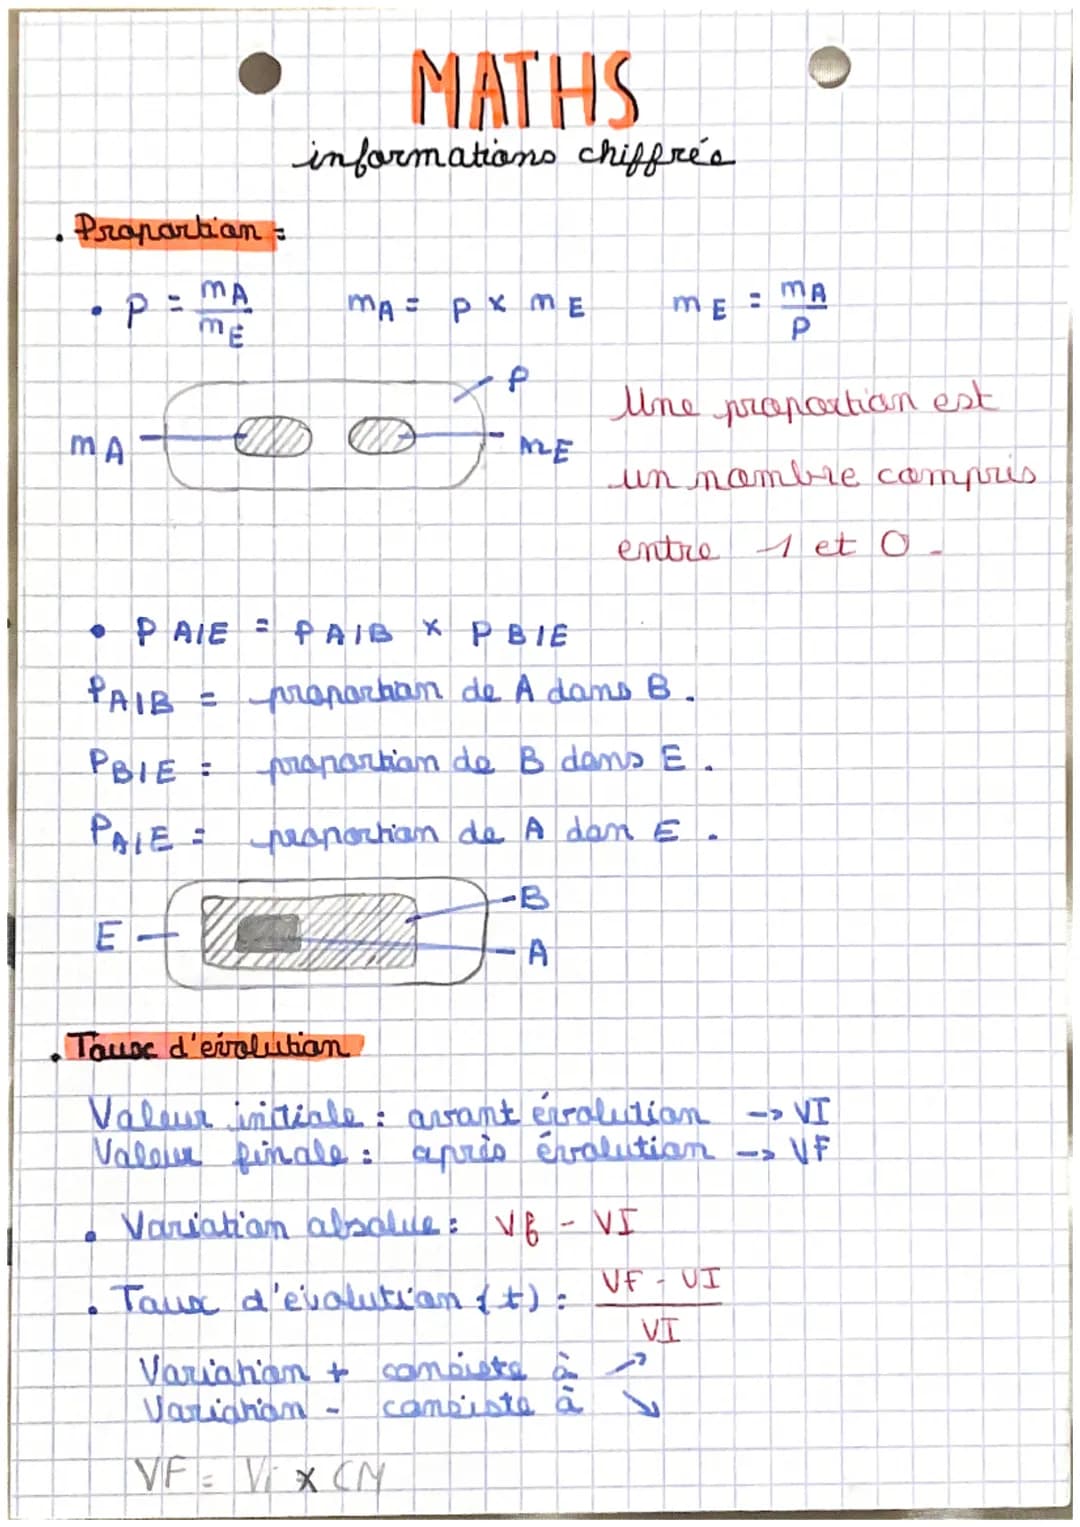 MATHS
informations chiffrés
. Proportion :
• P = mA / mE    mA = P x mE    mE = mA / P
P
mA
mE
Une proportion est
un nombre compris
entre 1 et 0.
• P A/E = P A/B x P B/E
PA/B = proportion de A dans B.
PB/E = proportion de B dans E.
PA/E = proportion de A dan E.
B
E
A
. Taux d'évolution
Valeur initiale : avant évolution -> VI
Valeur finale : après évolution -> VF
• Variation absolue : Vf - VI
. Taux d'évolution (t) : VF - VI / VI
Variation + consiste à ↗
Variation - consiste à ↘
VF = Vi x CM